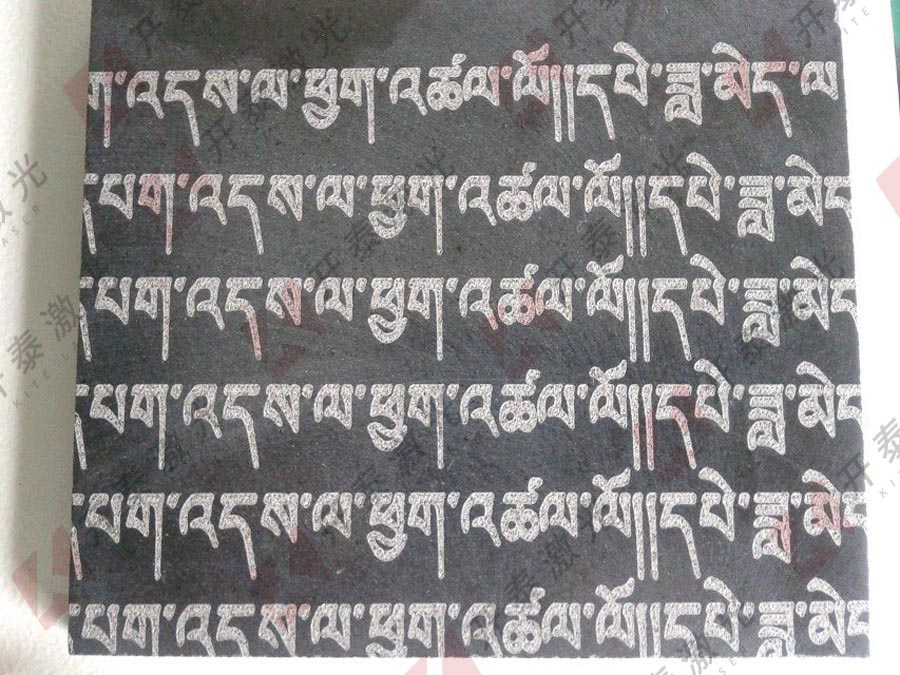 ག་འདས་ལ་ཕྱག་འཚལ་ལོ།།དཔེ་ཟླ་མེད་ལ
དཔག་འདས་ལ་ཕྱག་འཚལ་ལོ།།དཔེ་ཟླ་མེད
དཔག་འདས་ལ་ཕྱག་འཚལ་ལོ།།དཔེ་ཟླ་མེད
དཔག་འདས་ལ་ཕྱག་འཚལ་ལོ།།དཔེ་ཟླ་མེད
དཔག་འདས་ལ་ཕྱག་འཚལ་ལོ།།དཔེ་ཟླ་མེད
དཔག་འདས་ལ་ཕྱག་འཚལ་ལོ།།དཔེ་ཟླ་མེད
开泰激光
KITE LASER